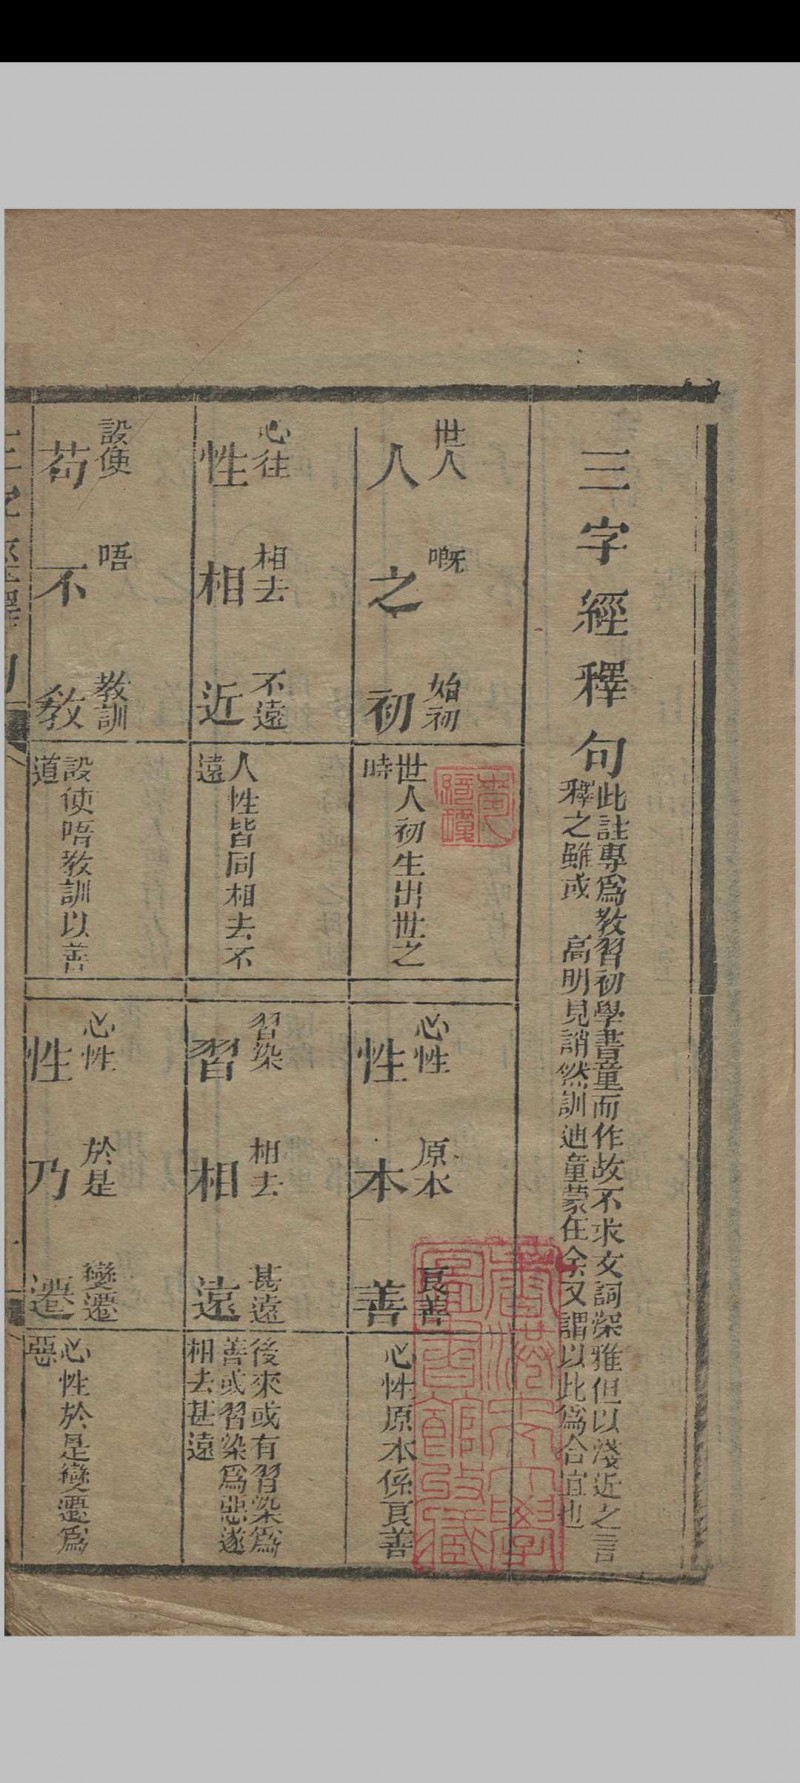 三字經釋句
此註專爲教習初學書童而作故不求文詞深雅但以淺近之言
釋之雖或 高明見誚然訓迪童蒙在余又謂以此爲合宜也
世人 嘅 始初
人之初
世人初生出世之
時
心性 原本 良善
性本善
心性原本係良善
心往 相去 不遠
性相近
人性皆同相去不
遠
習染 相去 甚遠
習相遠
後來或有習染爲
善或習染爲惡遂
相去甚遠
設使 唔 教訓
苟不教
設使唔教訓以善
道
心性 於是 變遷
性乃遷
心性於是變遷爲
惡